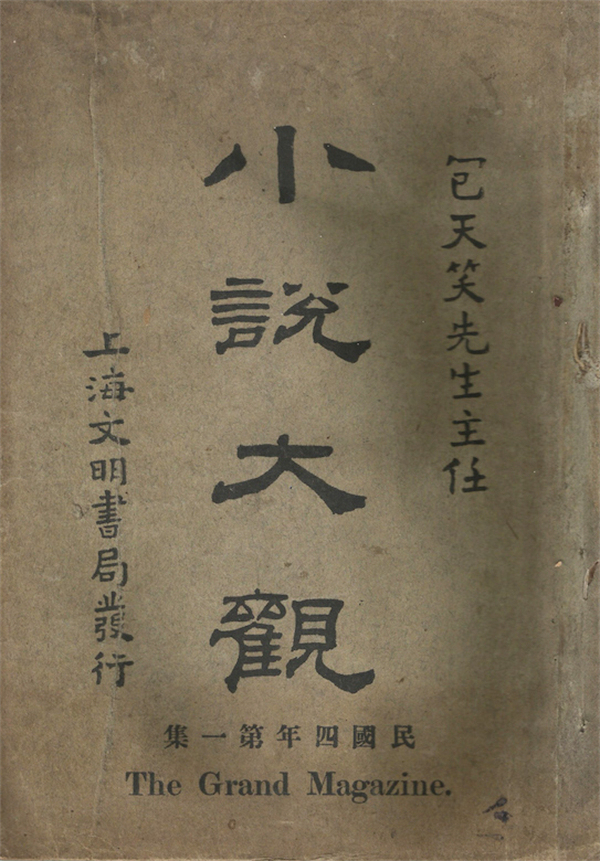 包天笑先生主任
小說大觀
上海文明書局發行
民國四年第一集
The Grand Magazine.